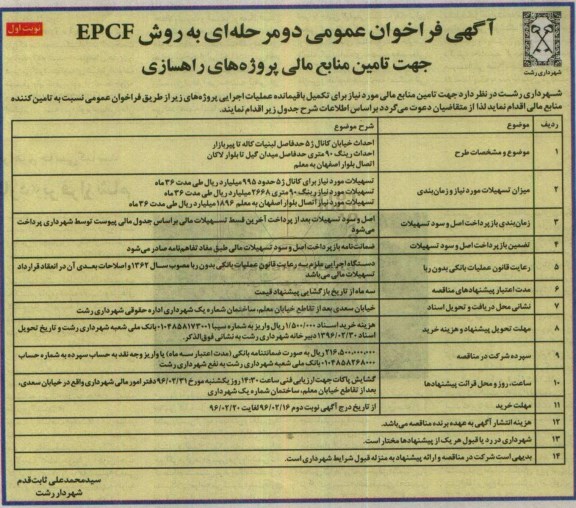 نوبت اول
آگهی فراخوان عمومی دومرحله‌ای به روش EPCF
جهت تامین منابع مالی پروژه‌های راهسازی
شهرداری رشت
شهرداری رشت در نظر دارد جهت تامین منابع مالی مورد نیاز برای تکمیل باقیمانده عملیات اجرایی پروژه‌های زیر از طریق فراخوان عمومی نسبت به تامین کننده
منابع مالی اقدام نماید لذا از متقاضیان دعوت می‌گردد براساس اطلاعات شرح جدول زیر اقدام نمایند.
ردیف موضوع شرح موضوع
۱ موضوع و مشخصات طرح
احداث خیابان کانال ژ۵ حدفاصل لبنیات کاله تا پیربازار
احداث رینگ ۹۰ متری حدفاصل میدان گیل تا بلوار لاکان
اتصال بلوار اصفهان به معلم
۲ میزان تسهیلات مورد نیاز و زمان‌بندی
تسهیلات مورد نیاز برای کانال ژ۵ حدود ۹۹۵ میلیارد ریال طی مدت ۳۶ ماه
تسهیلات مورد نیاز رینگ ۹۰ متری ۲۶۶۸ میلیارد ریال طی مدت ۳۶ ماه
تسهیلات مورد نیاز اتصال بلوار اصفهان به معلم ۱۸۹۶ میلیارد ریال طی مدت ۳۶ ماه
۳ زمان‌بندی بازپرداخت اصل و سود تسهیلات
اصل و سود تسهیلات بعد از پرداخت آخرین قسط تسهیلات مالی براساس جدول مالی پیوست توسط شهرداری پرداخت
می‌شود
۴ تضمین بازپرداخت اصل و سود تسهیلات ضمانت‌نامه بازپرداخت اصل و سود تسهیلات مالی طبق مفاد تفاهم‌نامه صادر می‌شود
۵ رعایت قانون عملیات بانکی بدون ربا
دستگاه اجرایی ملزم به رعایت قانون عملیات بانکی بدون ربا مصوب سال ۱۳۶۲ و اصلاحات بعدی آن در انعقاد قرارداد
تسهیلات مالی می‌باشد
۶ مدت اعتبار پیشنهادهای مناقصه سه ماه از تاریخ بازگشایی پیشنهاد قیمت
۷ نشانی محل دریافت و تحویل اسناد خیابان سعدی بعد از تقاطع خیابان معلم، ساختمان شماره یک شهرداری اداره حقوقی شهرداری رشت
۸ مهلت تحویل پیشنهاد و هزینه خرید اسناد
هزینه خرید اسناد ۱/۵۰۰/۰۰۰ ریال واریز به شماره سیبا ۰۱۰۴۸۵۸۱۷۳۰۰۱ بانک ملی شعبه شهرداری رشت و تاریخ تحویل
۱۳۹۶/۰۲/۳۰ دبیرخانه شهرداری رشت به نشانی فوق‌الذکر.
۹ سپرده شرکت در مناقصه
۲۱۶،۵۰۰،۰۰۰،۰۰۰ ریال به صورت ضمانتنامه بانکی (مدت اعتبار سه ماه) یا واریز وجه نقد به حساب سپرده به شماره حساب
۰۱۰۴۸۵۸۲۶۸۰۰۰ بانک ملی شعبه شهرداری رشت به نفع شهرداری رشت
۱۰ ساعت، روز و محل قرائت پیشنهادها
گشایش پاکات جهت ارزیابی فنی ساعت ۱۴:۳۰ روز یکشنبه مورخ ۹۶/۰۲/۳۱ دفتر امور مالی شهرداری واقع در خیابان سعدی،
بعد از تقاطع خیابان معلم، ساختمان شماره یک شهرداری
۱۱ مهلت خرید از تاریخ درج آگهی نوبت دوم ۹۶/۰۲/۱۶ لغایت ۹۶/۰۲/۲۰
۱۲ هزینه انتشار آگهی به عهده برنده مناقصه می‌باشد.
۱۳ شهرداری در رد یا قبول هر یک از پیشنهادها مختار است.
۱۴ بدیهی است شرکت در مناقصه و ارائه پیشنهاد به منزله قبول شرایط شهرداری است.
سیدمحمدعلی ثابت‌قدم
شهردار رشت